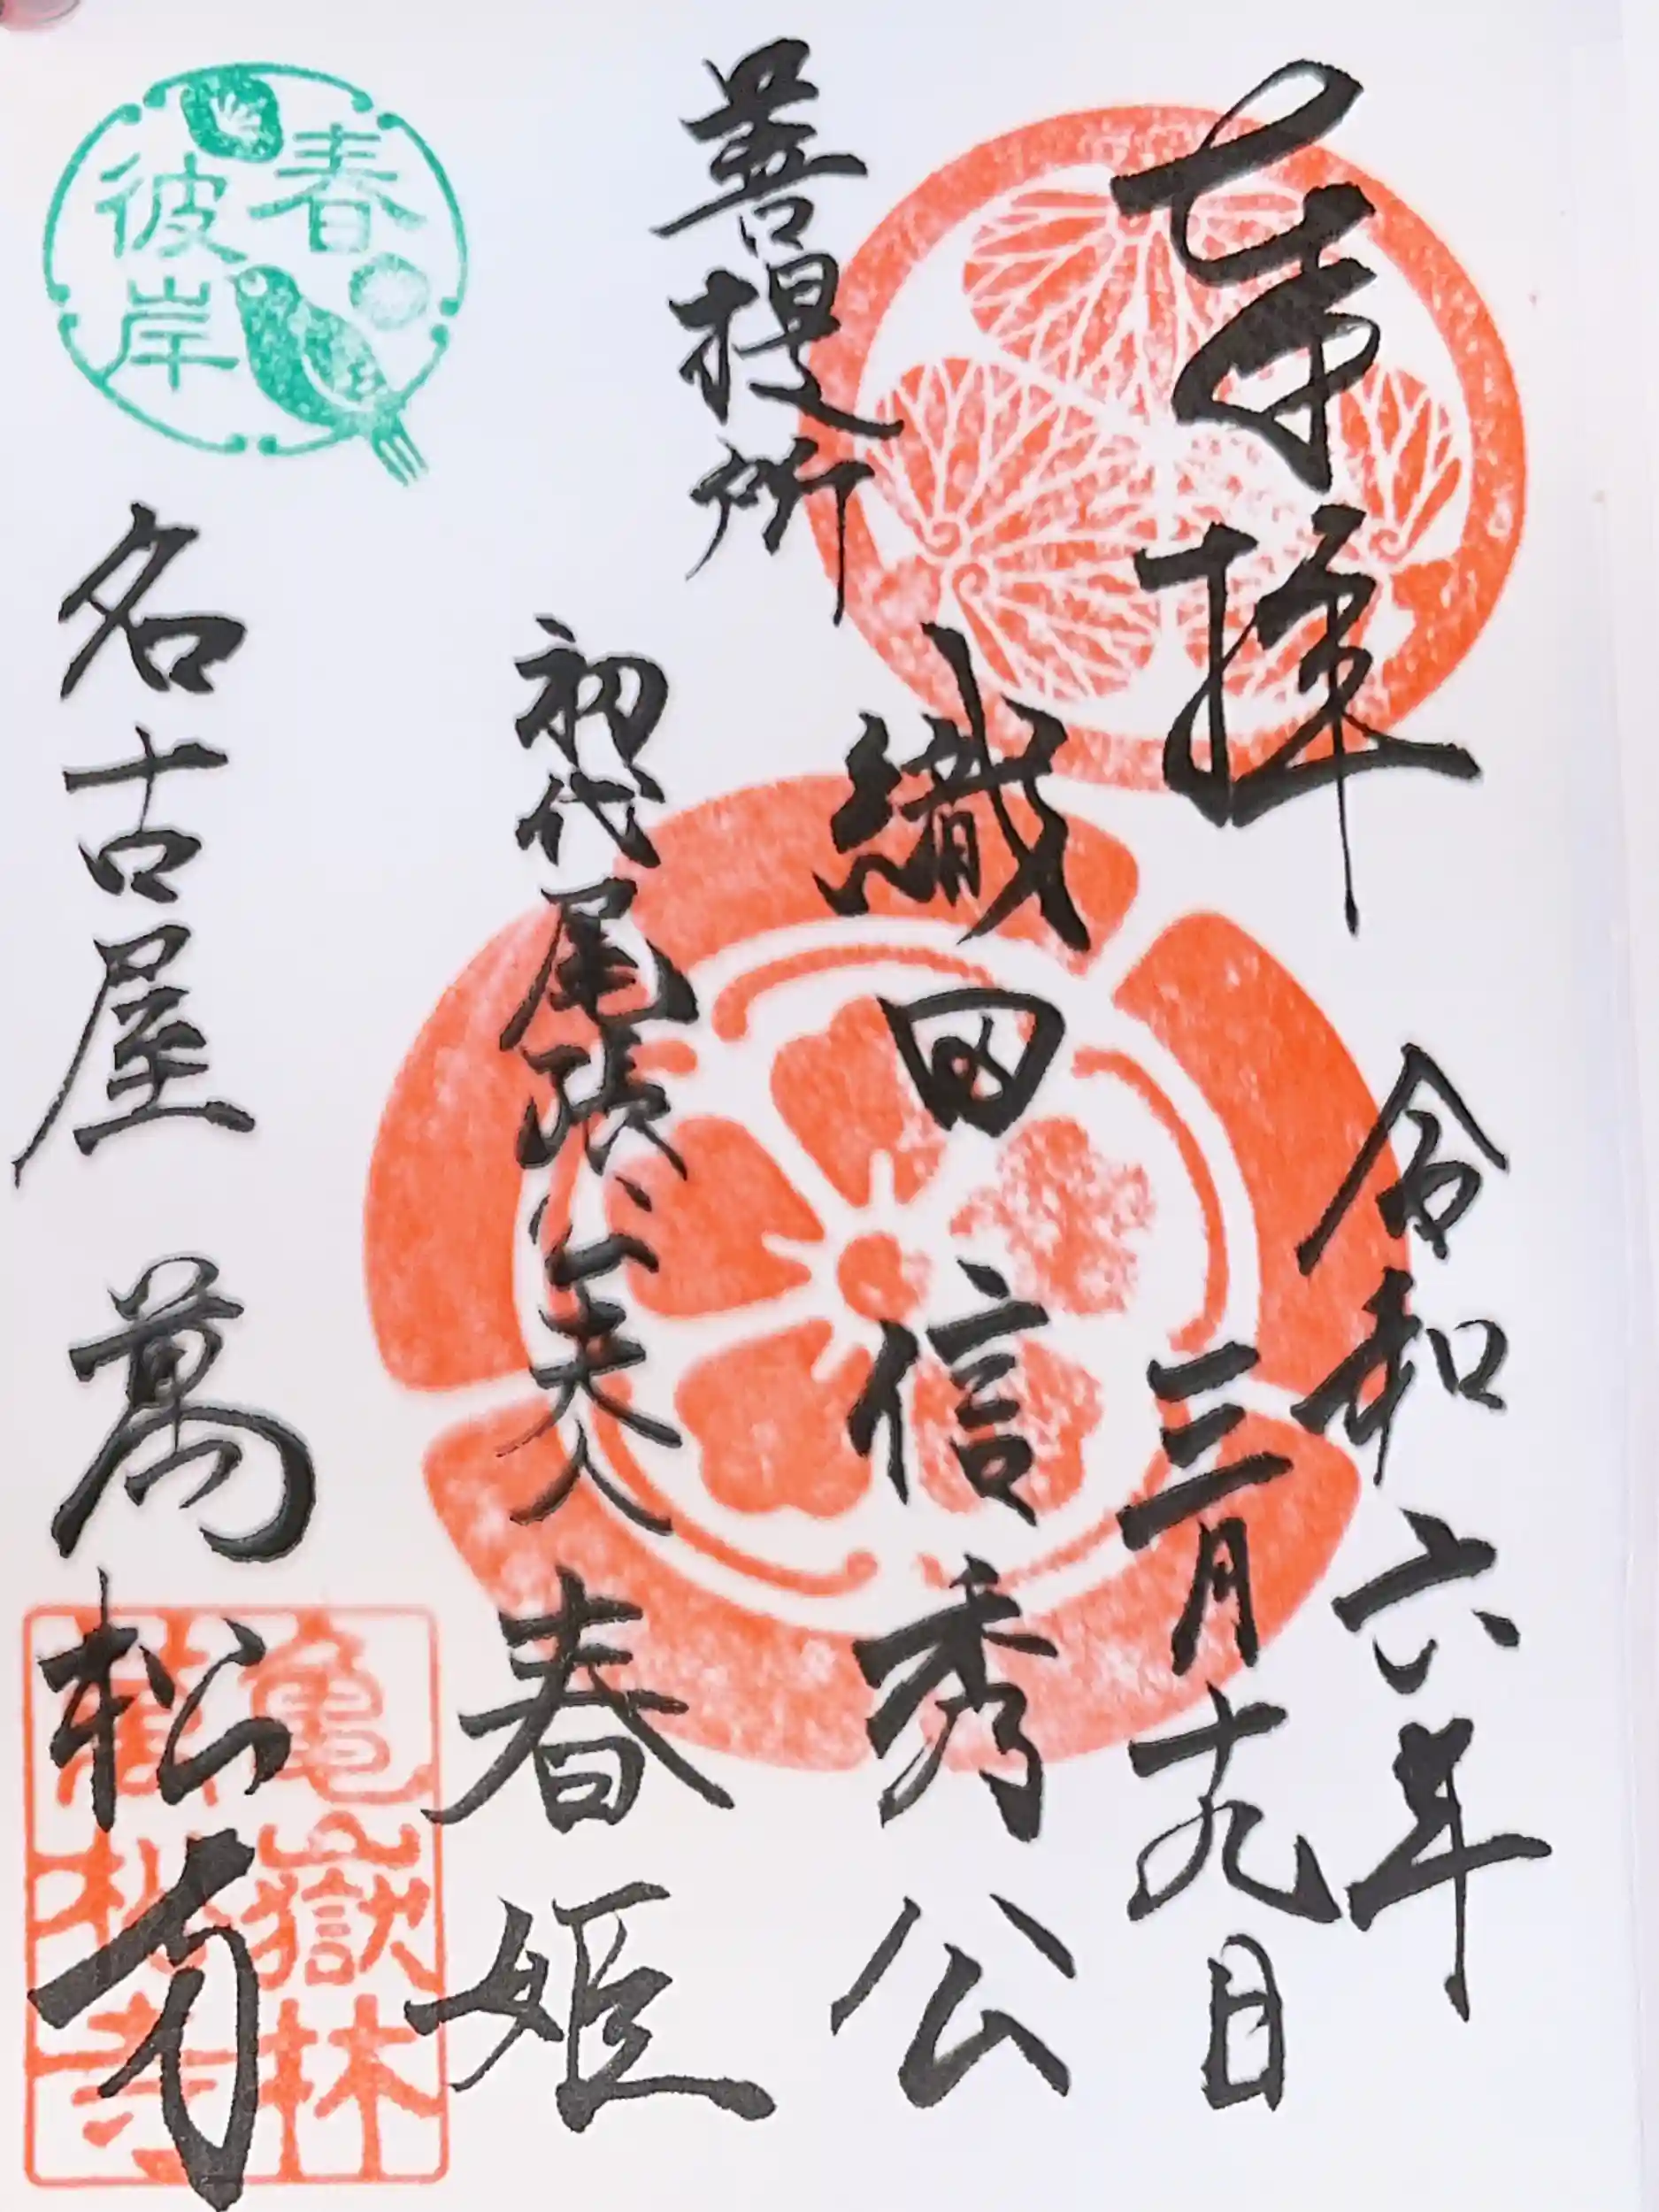 奉拝
令和六年
三月十九日
菩提所
織田信秀公
初代尾張公夫人
春姫
春
彼岸
名古屋 萬松寺
亀嶽林
萬松寺